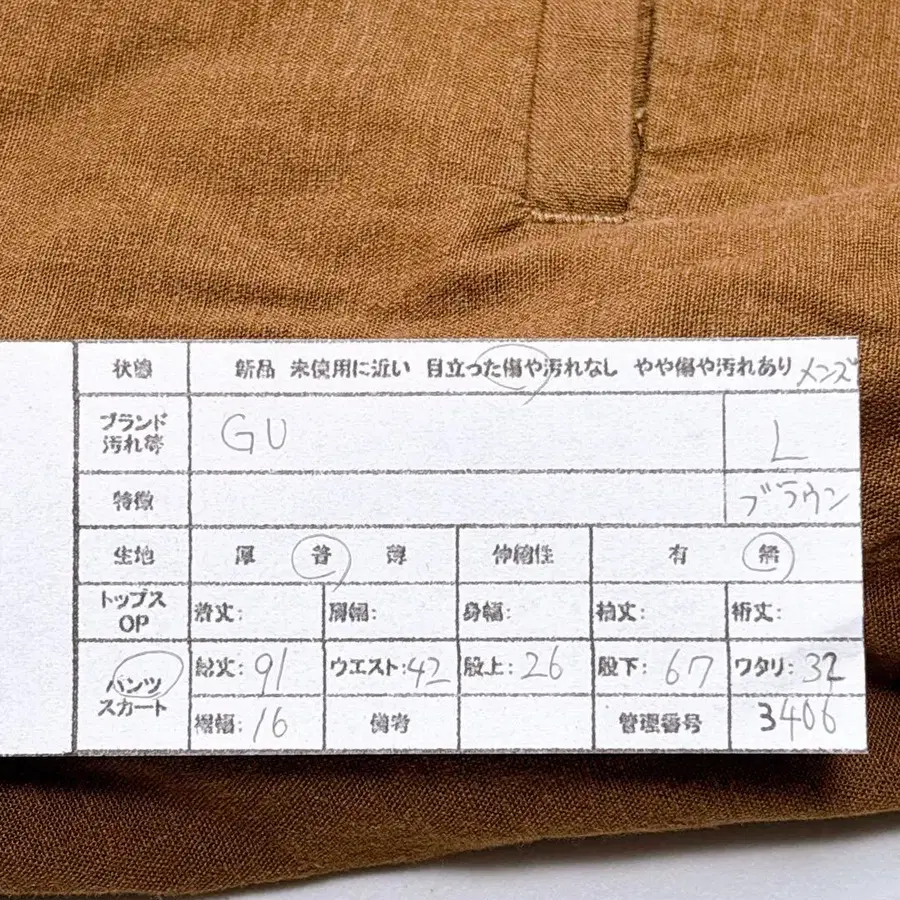 状態 新品 未使用に近い 目立った傷や汚れなし やや傷や汚れあり メンズ
ブランド
汚れ等 GU L
特徴 ブラウン
生地 厚 普 薄 伸縮性 有 無
トップス
OP 着丈: 肩幅: 身幅: 袖丈: 裄丈:
パンツ
スカート 総丈: 91 ウエスト: 42 股上: 26 股下: 67 ワタリ: 32
裾幅: 16 備考 管理番号 3406